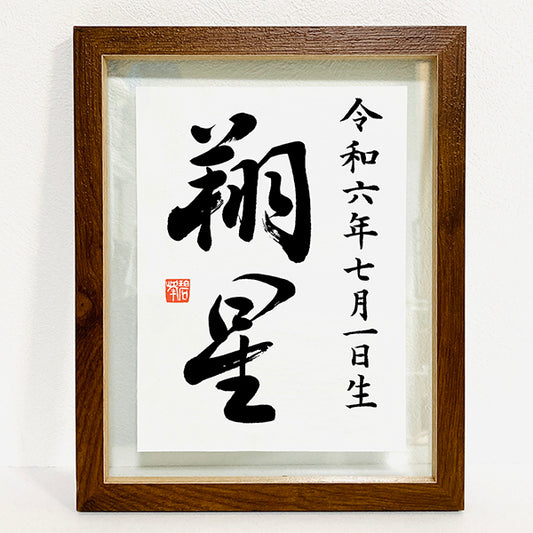 令和六年七月一日生
翔星